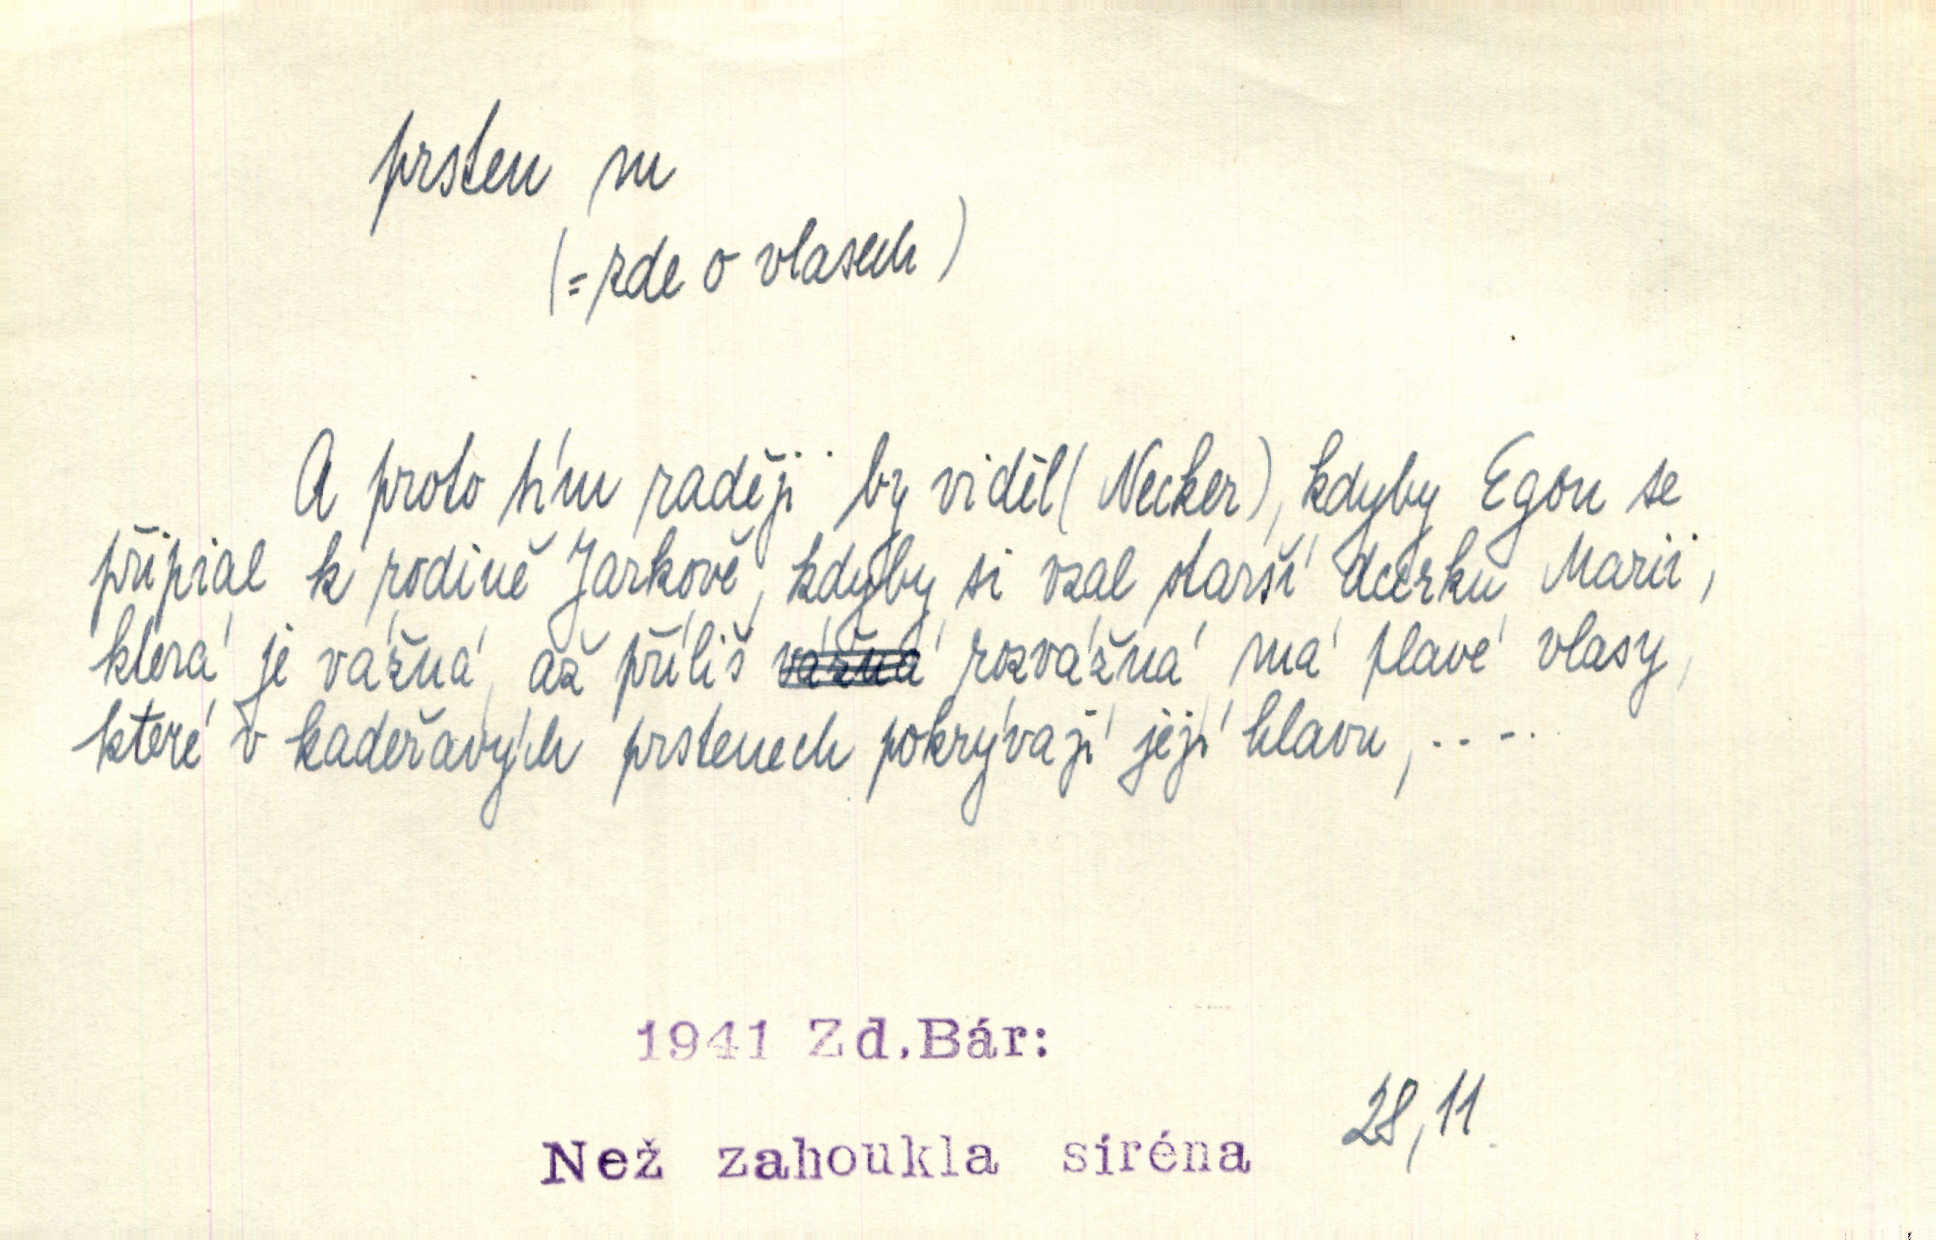 prsten m
(= zde o vlasech)
A proto tím raději by viděl (Necker), kdyby Egon se
připial k rodině Jarkově, kdyby si vzal starší dcerku Marii,
která je vážná, až příliš vážná rozvážná, má plavé vlasy,
které v kadeřavých prstenech pokrývají její hlavu, ....
1941 Zd.Bár:
Než zahoukla siréna 28,11